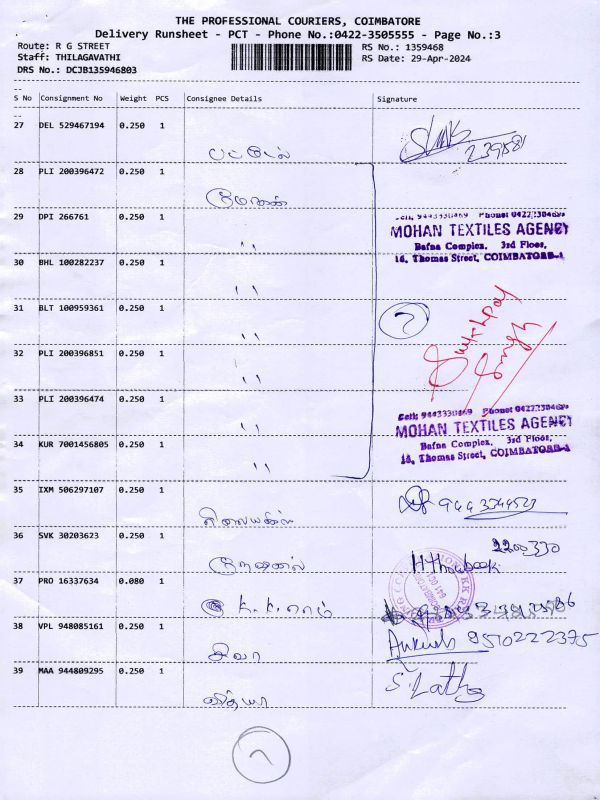 THE PROFESSIONAL COURIERS, COIMBATORE
Delivery Runsheet - PCT - Phone No.:0422-3505555 - Page No.:3
Route: R G STREET
RS No.: 1359468
Staff: THILAGAVATHI
RS Date: 29-Apr-2024
DRS No.: DCJB135946803
S No Consignment No Weight PCS Consignee Details Signature
27 DEL 529467194 0.250 1
பட்டேல்
28 PLI 200396472 0.250 1
மோகன்
29 DPI 266761 0.250 1
"
MOHAN TEXTILES AGENCY
Bafna Complex, 3rd Floor,
16, Thomas Street, COIMBATORE-1
30 BHL 100282237 0.250 1
"
31 BLT 100959361 0.250 1
"
7
32 PLI 200396851 0.250 1
"
33 PLI 200396474 0.250 1
"
MOHAN TEXTILES AGENCY
Bafna Complex, 3rd Floor,
16, Thomas Street, COIMBATORE-1
34 KUR 7001456805 0.250 1
"
35 IXM 506297107 0.250 1
36 SVK 30203623 0.250 1
2200330
37 PRO 16337634 0.080 1
K.K.ராம்
38 VPL 948085161 0.250 1
சிவா
Ankush 9510222375
39 MAA 944809295 0.250 1
வித்யா
S. Latha